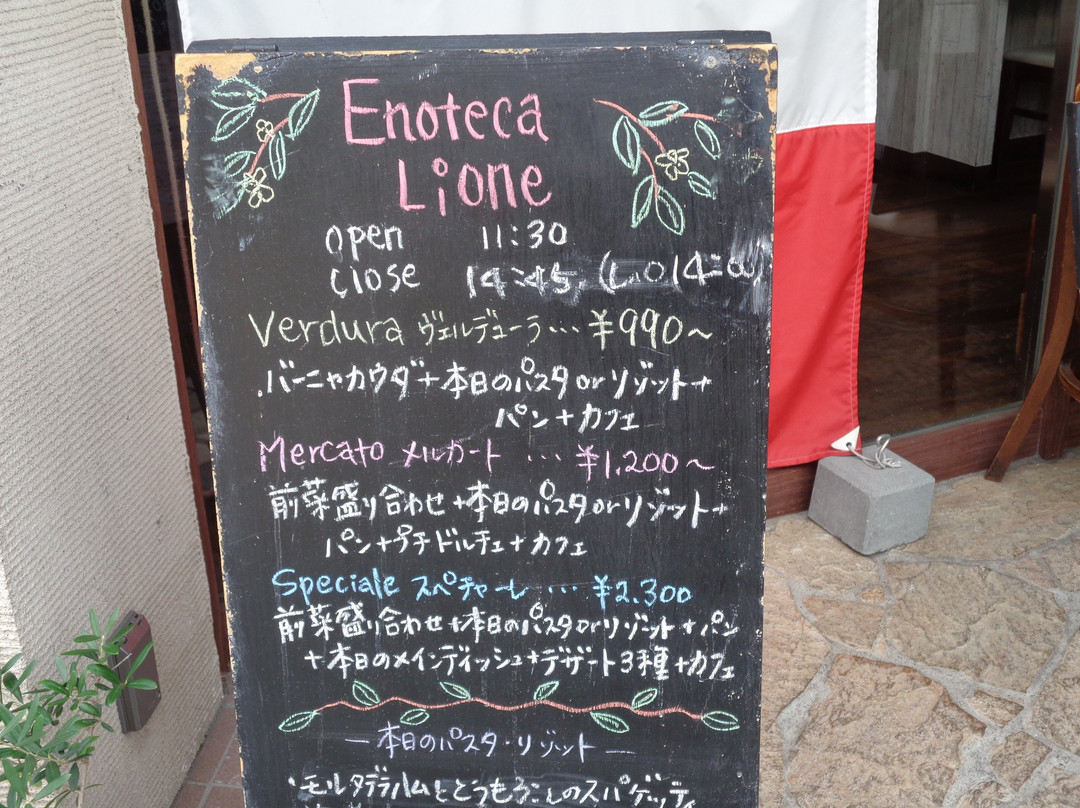 Enoteca
Lione
open 11:30
close 14:45 (L.O 14:00)
Verdura ヴェルデューラ… ¥990~
バーニャカウダ+本日のパスタorリゾット+
パン+カフェ
Mercato メルカート … ¥1,200~
前菜盛り合わせ+本日のパスタorリゾット+
パン+プチドルチェ+カフェ
Speciale スペチャーレ … ¥2.300
前菜盛り合わせ+本日のパスタorリゾット+パン
+本日のメインディッシュ+デザート3種+カフェ
—本日のパスタ・リゾット—
・モルタデラハムととうもろこしのスパゲッティ